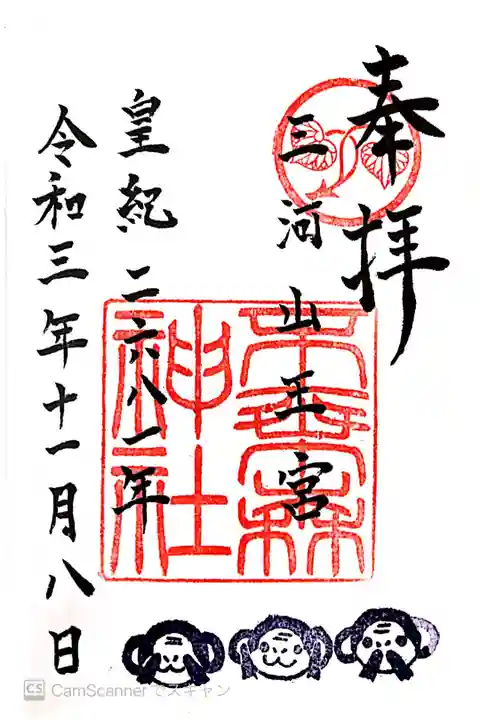 奉拝
三河山王宮
神社
皇紀二六八一年
令和三年十一月八日
CS CamScannerでスキャン